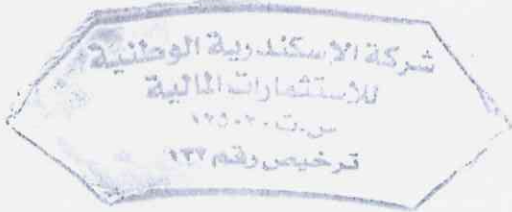 شركة الاسكندرية الوطنية
للاستثمارات المالية
س.ت
ترخيص رقم ١٣٢